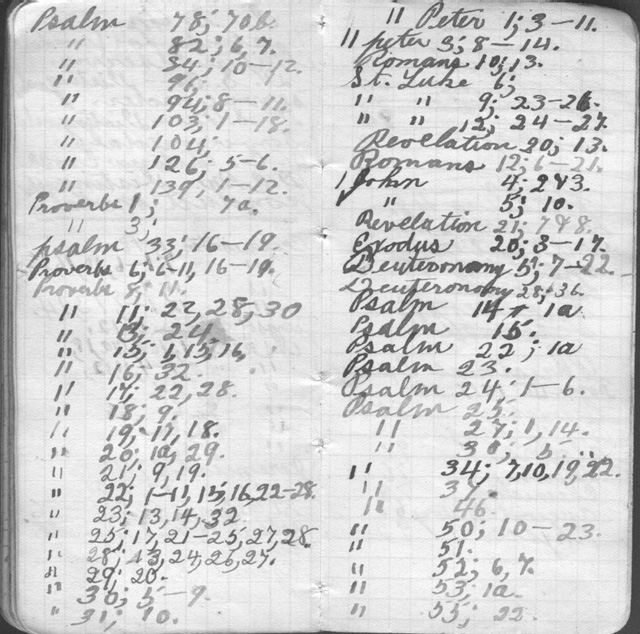 Psalm 78; 70b.
" 82; 6, 7.
" 84; 10-12.
" 96;
" 94; 8-11.
" 103; 1-18.
" 104;
" 126; 5-6.
" 139, 1-12.
Proverbs 1; 7a.
" 3;
psalm 33; 16-19.
Proverbs 6; 6-11, 16-19.
Proverbs 8; 11.
" 11; 22, 28, 30
" 13; 24
" 15; 1, 15, 16,
" 16; 32.
" 17; 22, 28.
" 18; 9.
" 19; 11, 18.
" 20; 1a, 29.
" 21; 9, 19.
" 22; 1-11, 15, 16, 22-28.
" 23; 13, 14, 32
" 25; 17, 21-25, 27, 28.
" 28; 13, 24, 26, 27.
" 29; 20.
" 30; 5-9.
" 31; 10.
II Peter 1; 3-11.
II peter 3; 8-14.
Romans 10; 13.
St. Luke 6;
" " 9; 23-26.
" " 12; 24-27.
Revelation 20; 13.
Romans 12; 6-21.
I John 4; 2&3.
" 5; 10.
Revelation 21; 7&8.
Exodus 20; 3-17.
Deuteronomy 5; 7-22.
Deuteronomy 28; 36.
Psalm 14; 1a.
Psalm 15.
Psalm 22; 1a
Psalm 23.
Psalm 24; 1-6.
Psalm 25.
" 27; 1, 14.
" 30; 5
" 34; 7, 10, 19, 22.
" 37.
" 46.
" 50; 10-23.
" 51.
" 52; 6, 7.
" 53; 1a.
" 55; 22.